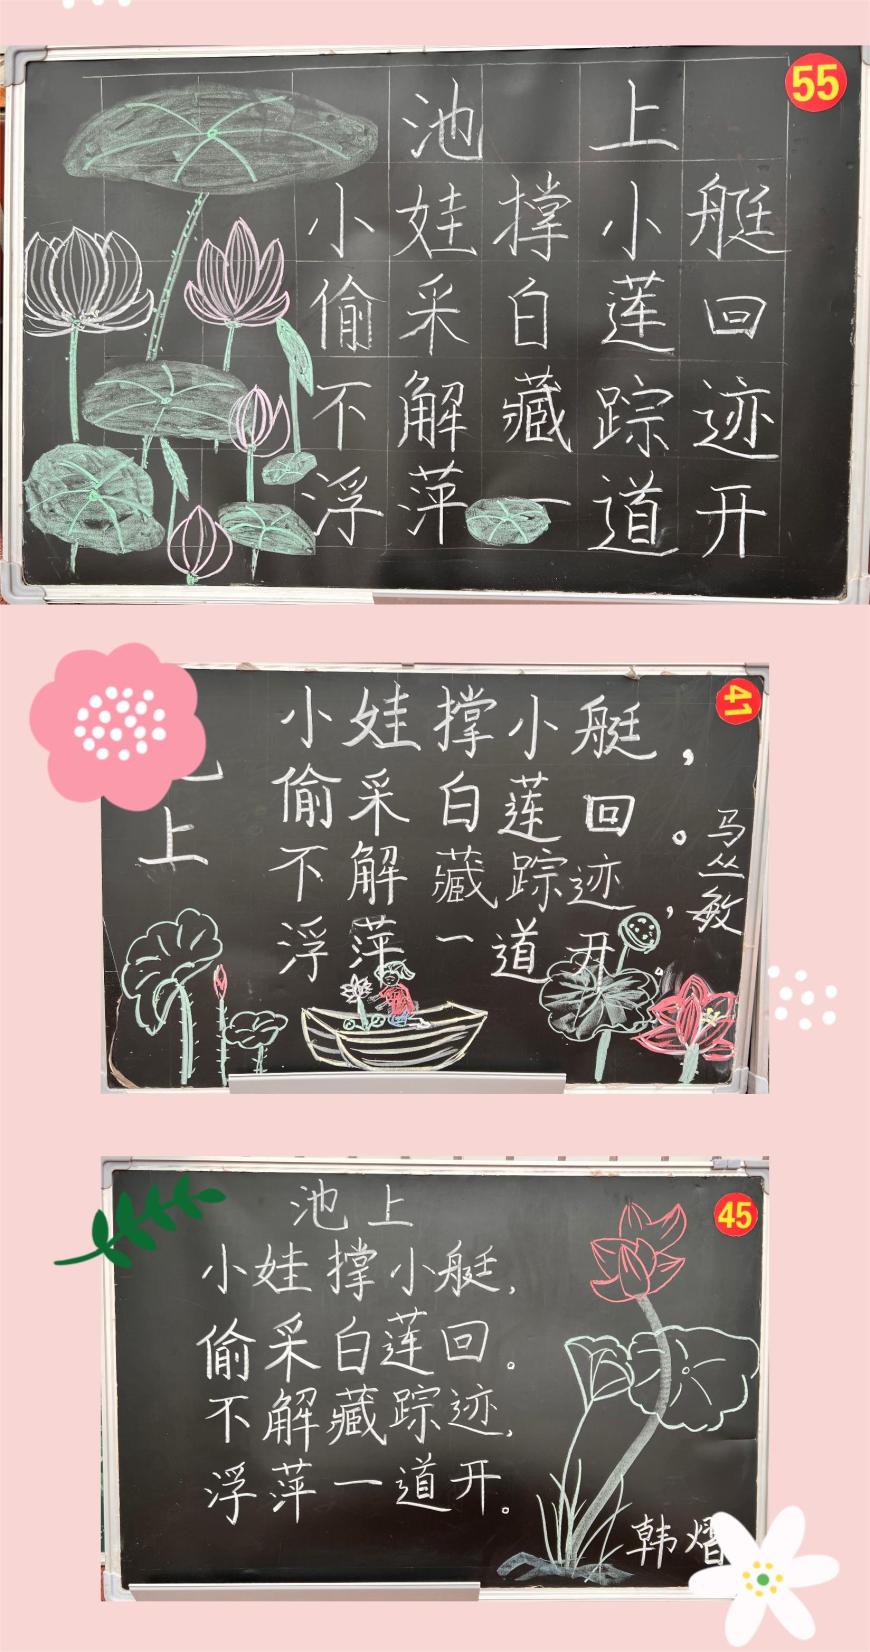 55
池上
小娃撑小艇
偷采白莲回
不解藏踪迹
浮萍一道开
41
上
小娃撑小艇，
偷采白莲回。
不解藏踪迹，
浮萍一道开。
马丛敏
45
池上
小娃撑小艇，
偷采白莲回。
不解藏踪迹，
浮萍一道开。
韩熠